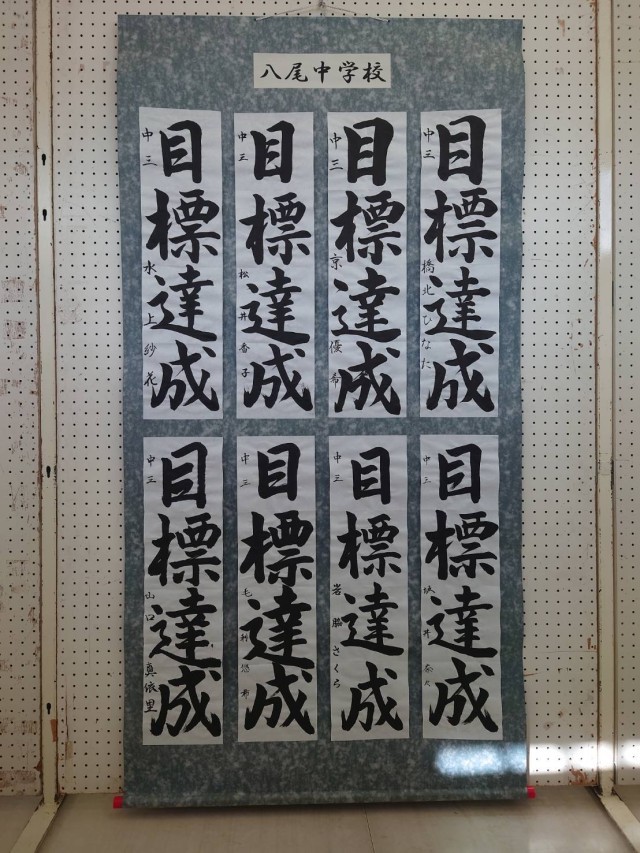 八尾中学校
目標達成
中三 橋北ひなた
目標達成
中三 京 優希
目標達成
中三 松井香子
目標達成
中三 水上紗花
目標達成
中三 坂井奈々
目標達成
中三 岩脇さくら
目標達成
中三 毛利悠希
目標達成
中三 山口真依里